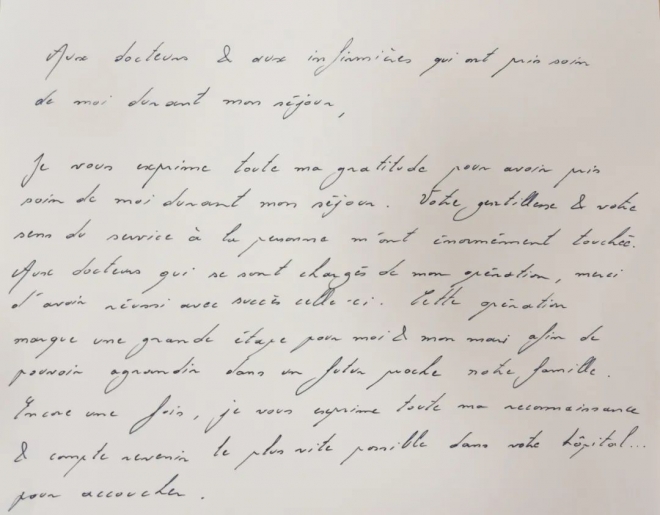 Aux docteurs & aux infirmières qui ont pris soin
de moi durant mon séjour,
Je vous exprime toute ma gratitude pour avoir pris
soin de moi durant mon séjour. Votre gentillesse & votre
sens du service à la personne m'ont énormément touchée.
Aux docteurs qui se sont chargés de mon opération, merci
d'avoir réussi avec succès celle-ci. Cette opération
marque une grande étape pour moi & mon mari afin de
pouvoir agrandir dans un futur proche notre famille.
Encore une fois, je vous exprime toute ma reconnaissance
& compte revenir le plus vite possible dans votre hôpital...
pour accoucher.